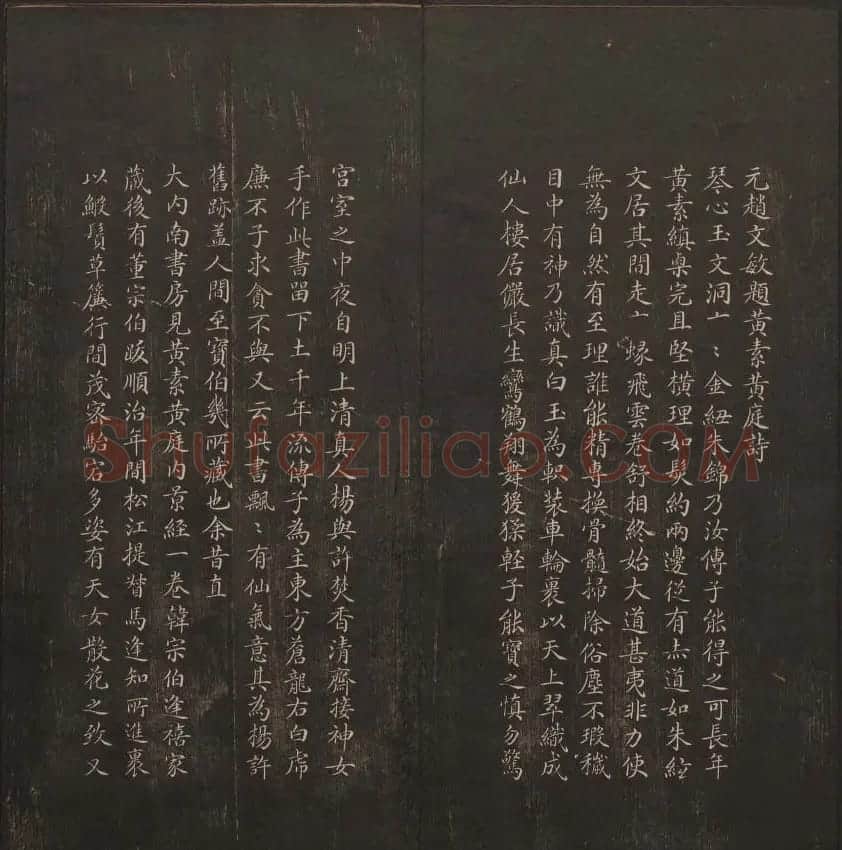 元趙文敏題黃素黃庭詩
琴心玉文洞亠〻金紐朱錦乃汝傳子能得之可長年
黃素縝㮚完且堅橫理如髮約兩邊從有赤道如朱絃
文居其間走亠蜿飛雲卷舒相終始大道甚夷非力使
無為自然有至理誰能精專換骨髓掃除俗塵不瑕穢
目中有神乃識真白玉為軑裝車輪裹以天上翠織成
仙人樓居儼長生鸞鶴翔舞猨猱輕子能寶之慎勿驚
宮室之中夜自明上清真人楊與許焚香清齋接神女
手作此書留下土千年流傳子為主東方蒼龍右白虎
廉不子求貪不與又云此書飄〻有仙氣意其為楊許
舊跡盖人間至寶伯幾所藏也余昔直
大內南書房見黃素黃庭內景經一卷韓宗伯逢禧家
藏後有董宗伯跋順治年間松江提督馬逢知所進裹
以鰕鬚草簾行間茂密駘宕多姿有天女散花之致又
Shufaziliao.COM